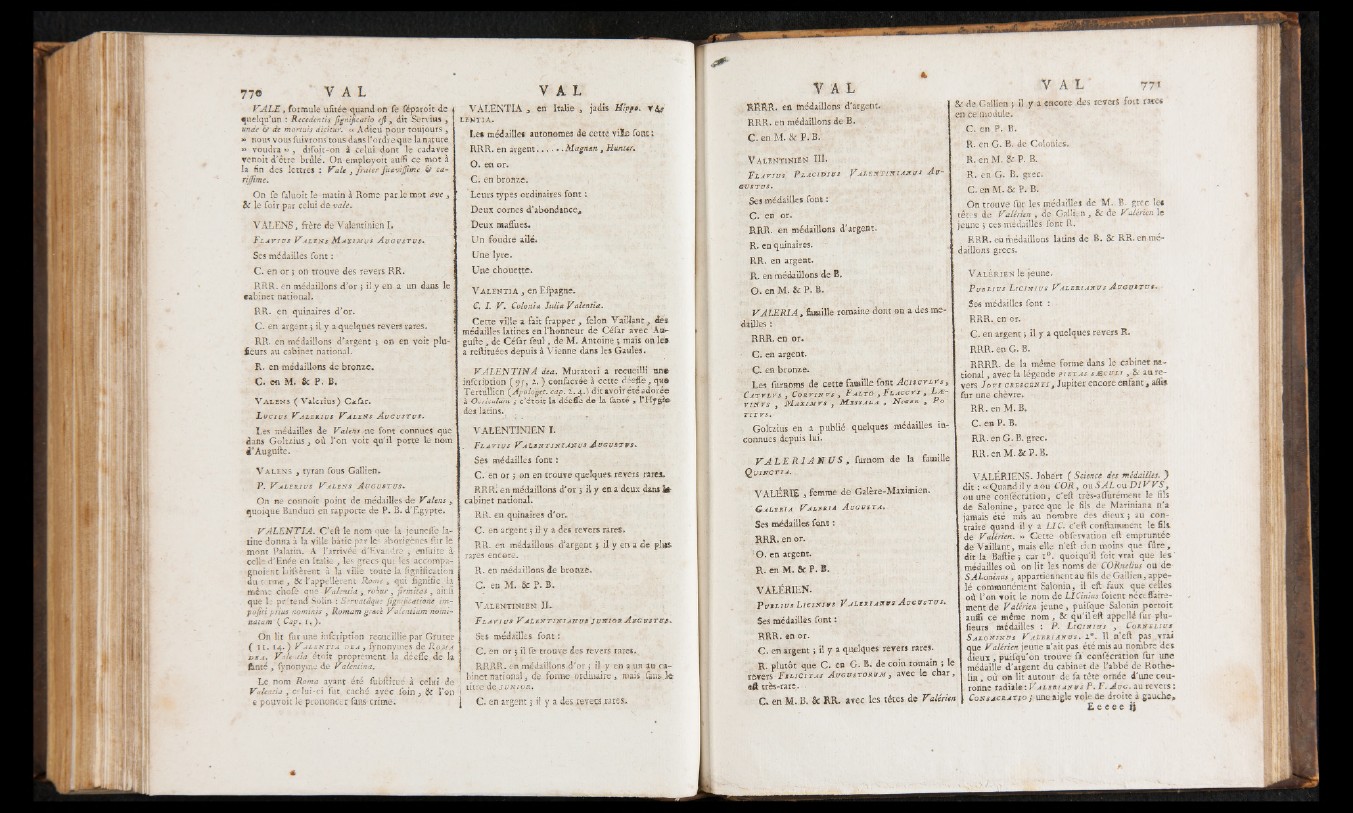 770 VAL
VALE, formule usitée quand on se séparoit de
quelqu'un : Recedentis significatio est, dit Servius,
unde & de mortuis dicitur. « Adieu pour toujours,
» nous vous suivrons tous dans l'ordre que la nature
» voudra », disoit-on à celui dont le cadavre
venoit d'être brûlé. On employoit aussi ce mot à
la fin des lettres : Vale, frater suavissime & ca-
rissime.
On se saluoit le matin à Rome par le mot ave,
& le soir par celui de vale.
VALENS, frère de Valentinien I.
FLAVIUS VALENS MAXIMUS AUGUSTUS.
Ses médailles sont :
C. en or ; on trouve des revers RR.
RRR. en médaillons d'or ; il y en a un dans le
cabinet national.
RR. en quinaires d'or.
C. en argent ; il y a quelques revers rares.
RR. en médaillons d'argent ; on en voit plu-
sieurs au cabinet national.
R. en médaillons de bronze.
C. en M. & P. B.
VALENS (Valerius) Cæsar.
LUCIUS VALERIUS VALENS AUGUSTUS.
Les médailles de Valens ne sont connues que
dans Goltzius, où l'on voit qu'il porte le nom
d'Auguste.
VALENS, tyran sous Gallien.
P. VALERIUS VALENS AUGUSTUS.
On ne connoît point de médailles de Valens,
quoique Banduri en rapporte de P. B. d'Egypte.
VALENTIA. C'est le nom que la jeunesse la-
tine donna à la ville batie par les aborigènes sur le
mont Palatin. A l'arrivée d'Evandre, ensuite à
celle d'Enée en Italie, les grecs qui les accompa-
gnoient laissèrent à la ville toute la signification
du terme, & l'appellèrent Rome, qui signifie la
même chose que Valentia, robur, firmitas, ainsi
que le prétend Solin : Servatâque significatione im-
positi prius nominis, Romam græcè Valentiam nomi-
natam (Cap. 1.).
On lit sur une inscription recueillie par Gruter
(11. 14.) VALENTIA DEA, synonymes de ROMA
DEA. Valentia étoit proprement la déesse de la
santé, synonyme de Valentina.
Le nom Roma ayant été substitué à celui de
Valentia, celui-ci fut caché avec soin, & l'on
e pouvoit le prononcer sans crime.
VAL
VALENTIA, en Italie, jadis Hippo. VA
LENTIA.
Les médailles autonomes de cette ville sont :
RRR. en argent...... Magnan, Hunter.
O. en or.
C. en bronze.
Leurs types ordinaires sont :
Deux cornes d'abondance,
Deux massues.
Un foudre ailé.
Une lyre.
Une chouette.
VALENTIA, en Espagne.
C. I. V. Colonia Iulia Valentia.
Cette ville a fait frapper, selon Vaillant, des
médailles latines en l'honneur de César avec Au-
guste, de César seul, de M. Antoine ; mais on les
a restituées depuis à Vienne dans les Gaules.
VALENTINA dea. Muratori a recueilli une
inscription (95, 2.) consacrée à cette déesse, que
Tertullien (Apologet. cap. 2. 4.) dit avoir été adorée
à Ocriculum ; c'étoit la déesse de la santé, l'Hygie
des latins.
VALENTINIEN I.
FLAVIUS VALENTINIANUS AUGUSTUS.
Ses médailles sont :
C. en or ; on en trouve quelques revers rares.
RRR. en médaillons d'or ; il y en a deux dans le
cabinet national.
RR. en quinaires d'or.
C. en argent ; il y a des revers rares.
RR. en médaillons d'argent ; il y en a de plus
rares encore.
R. en médaillons de bronze.
C. en M. & P. B.
VALENTINIEN II.
FLAVIUS VALENTINIANUS JUNIOR AUGUSTUS.
Ses médailles sont :
C. en or ; il se trouve des revers rares.
RRRR. en médaillons d'or ; il y en a un au ca-
binet national, de forme ordinaire, mais sans le
titre de JUNIOR.
C. en argent ; il y a des revers rares.
VAL
RRRR. en médaillons d'argent.
RRR. en médaillons de B.
C. en M. & P. B.
VALENTINIEN III.
FLAVIUS PLACIDIUS VALENTINIANUS AU-
GUSTUS.
Ses médailles sont :
C. en or.
RRR. en médaillons d'argent.
R. en quinaires.
RR. en argent.
R. en médaillons de B.
O. en M. & P. B.
VALERIA, famille romaine dont on a des mé-
dailles :
RRR. en or.
C. en argent.
C. en bronze.
Les surnoms de cette famille sont ACISCVLVS,
CATVLVS, CORVINVS, FALTO, FLACCVS, LÆ-
VINVS, MAXIMVS, MESSALA, NIGER, PO
TITVS.
Goltzius en a publié quelques médailles in-
connues depuis lui.
VALERIANUS, surnom de la famille
QUINCTIA.
VALÉRIE, femme de Galère-Maximien.
GALERIA VALERIA AUGUSTA.
Ses médailles sont :
RRR. en or.
O. en argent.
R. en M. & P. B.
VALÉRIEN.
PUBLIUS LICINIUS VALERIANUS AUGUSTUS.
Ses médailles sont :
RRR. en or.
C. en argent ; il y a quelques revers rares.
R. plutôt que C. en G. B. de coin romain ; le
revers FELICITAS AUGUSTORUM, avec le char,
est très-rare.
C. en M. B. & RR. avec les têtes de Valérien
VAL 771
& de Gallien ; il y a encore des revers fort rares
en ce module.
C. en P. B.
R. en G. B. de Colonies.
R. en M. & P. B.
R. en G. B. grec.
C. en M. & P. B.
On trouve sur les médailles de M. B. grec les
têtes de Valérien, de Gallien, & de Valérien le
jeune ; ces médailles sont R.
RRR. en médaillons latins de B. & RR. en mé-
daillons grecs.
VALÉRIEN le jeune.
PUBLIUS LICINIUS VALERIANUS AUGUSTUS.
Ses médailles sont :
RRR. en or.
C. en argent ; il y a quelques revers R.
RRR. en G. B.
RRRR. de la même forme dans le cabinet na-
tional, avec la légende PIETAS SÆCULI, & au re-
vers JOVI CRESCENTI, Jupiter encore enfant, assis
sur une chèvre.
RR. en M. B.
C. en P. B.
RR. en G. B. grec.
RR. en M. & P. B.
VALÉRIENS. Jobert (Science des médailles.)
dit : « Quand il y a ou COR, ou SAL ou DIVVS,
ou une consécration, c'est très-assurément le fils
de Salonine, parce que le fils de Mariniana n'a
jamais été mis au nombre des dieux ; au con-
traire quand il y a LIC. c'est constamment le fils
de Valérien. » Cette observation est empruntée
de Vaillant, mais elle n'est rien moins que sûre,
dit la Bastie ; car 1°. quoiqu'il soit vrai que les
médailles où on lit les noms de CORnelius ou de
SALoninus, appartiennent au fils de Gallien, appe-
lé communément Salonin, il est faux que celles
où l'on voit le nom de LICinius soient nécessaire-
ment de Valérien jeune, puisque Salonin portoit
aussi ce même nom, & qu'il est appellé sur plu-
sieurs médailles : P. LICINIUS, CORNELIUS
SALONINUS VALERIANUS. 2°. Il n'est pas vrai
que Valérien jeune n'ait pas été mis au nombre des
dieux, puisqu'on trouve sa consécration sur une
médaille d'argent du cabinet de l'abbé de Rothe-
lin, où on lit autour de sa tête ornée d'une cou-
ronne radiale : VALERIANUS P. F. AUG. au revers :
CONSACRATIO ; une aigle vole de droite à gauche,
E e e e e ij